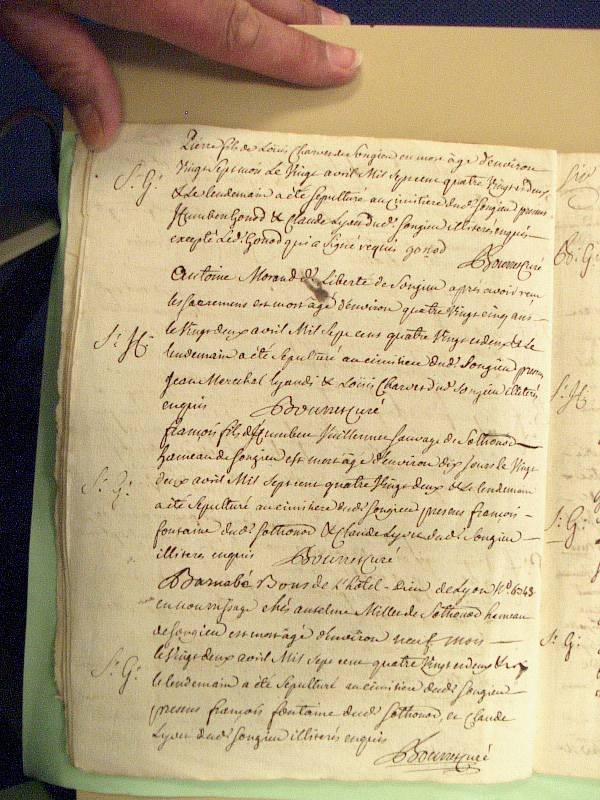 Pierre fils de Loüis Charvet de Songieu est mort âgé d'environ
Vingt Sept mois Le Vingt avril Mil Sept cent quatre Vingt et deux
& Le lendemain a été Sepulturé au cimitiere dud. Songieu presens
Humbert Gonod & Claude Lyon dud. Songieu illiterés enquis
excepté Led. Gonod qui a signé requis gonod
Bourret Curé
S. G.
Antoine Morand de Liberte de Songieu après avoir reçu
les sacremens est mort âgé d'environ quatre Vingt cinq ans
le Vingt deux avril Mil Sept cent quatre Vingt et deux & Le
S. H.
lendemain a été Sepulturé au cimitiere dud. Songieu presens
Jean Marechal & Loüis Charvet dud. Songieu illiterés
enquis Bourret Curé
françois fils d'Humbert Vuillermet Sauvage de Sothonod
hameau de Songieu est mort âgé d'environ dix jours le Vingt
S. G.
deux avril Mil Sept cent quatre Vingt deux & Le lendemain
a été Sepulturé au cimitiere dud. Songieu presens françois
fontaine dud. Sothonod & Claude Lyon dud. Songieu
illiterés enquis Bourret Curé
Barnabé Bons de L'hôtel-Dieu de Lyon N.º 6348
en nourrissage chés anselme Millet de Sothonod hameau
de Songieu est mort âgé d'environ neuf mois
le Vingt deux avril Mil Sept cent quatre Vingt et deux &
S. G.
le lendemain a été Sepulturé au cimitiere dud. Songieu
presens françois fontaine dud. Sothonod, et Claude
Lyon dud. Songieu illiterés enquis
Bourret Curé
S. H.
S. G.
S. G.